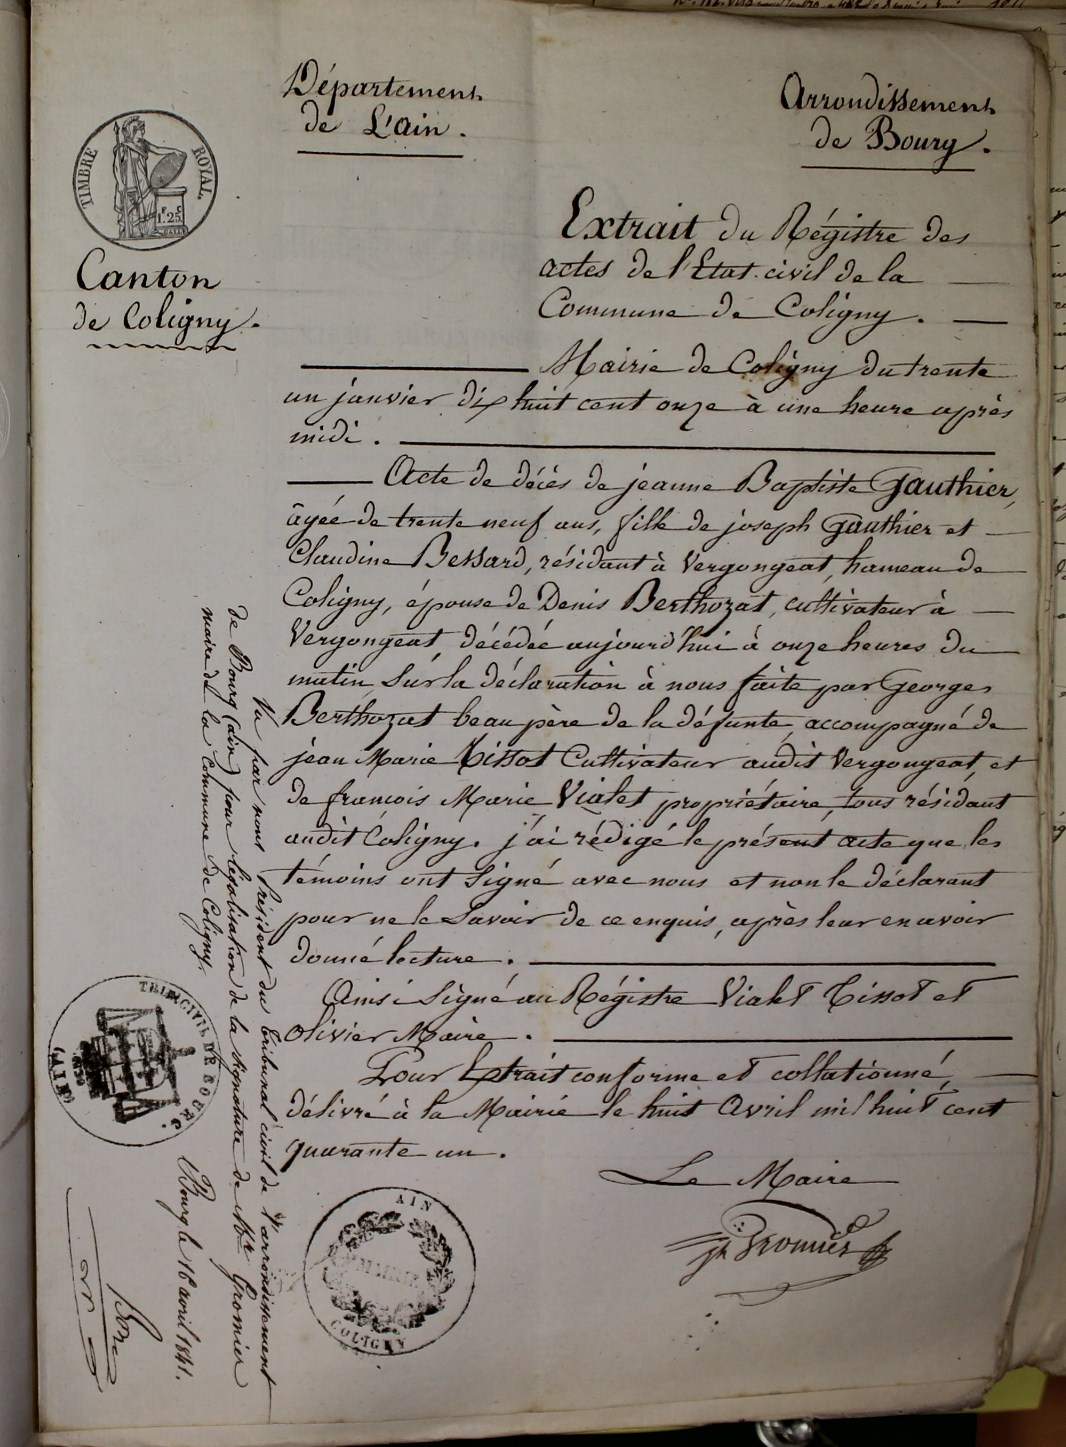 Département
de L'ain.
Arrondissement
de Bourg.
TIMBRE ROYAL.
1.25
Canton
de Coligny.
Extrait du Régistre des
actes de l'Etat-civil de la
Commune de Coligny.
Mairie de Coligny du trente
un janvier dix huit cent onze à une heure après
midi.
Acte de décès de jeanne Baptiste Gauthier,
âgée de trente neuf ans, fille de joseph Gauthier et
Claudine Bessard, résidant à Vergongeat, hameau de
Coligny, épouse de Denis Berthozat, cultivateur à
Vergongeat, décédée aujourd'hui à onze heures du
matin sur la déclaration à nous faite par Georges
Berthozat beau père de la défunte, accompagné de
jean Marie Tissot Cultivateur audit Vergongeat, et
de francois Marie Vialet propriétaire, tous résidant
audit Coligny. j'ai rédigé le présent acte que les
témoins ont signé avec nous et non le déclarant
pour ne le savoir de ce enquis, après leur en avoir
donné lecture.
Ainsi Signé au Régistre Vialet Tissot et
olivier Maire.
Pour Extrait conforme et collationné,
délivré à la Mairie le huit Avril mil huit cent
quarante un.
Le Maire
Gromier
Vu par nous Président du tribunal civil de l'arrondissement
de Bourg (ain) pour légalisation de la signature de Mr Gromier
maire de la Commune de Coligny.
Bourg le 16 avril 1841.
TRIB. CIVIL DE BOURG.
(AIN)
AIN
MAIRIE
COLIGNY